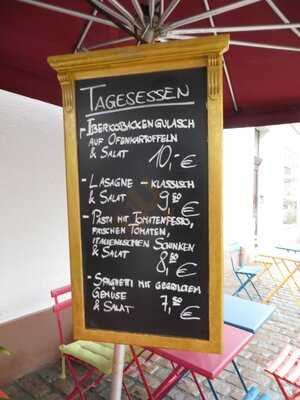 TAGESESSEN
- IBERICOBACKENGULASCH
AUF OFENKARTOFFELN
& SALAT 10,- €
- LASAGNE - KLASSISCH
& SALAT 9,50 €
- PASTA MIT TOMATENPESTO,
FRISCHEN TOMATEN,
ITALIENISCHEN SCHINKEN
& SALAT
8,- €
- SPAGHETTI MIT GEGRILLTEM
GEMÜSE 7,50 €
& SALAT